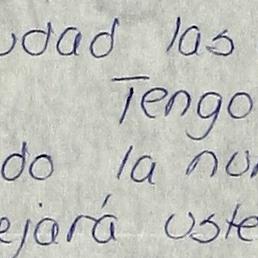 udad las
Tengo
do la nu
ejará uste